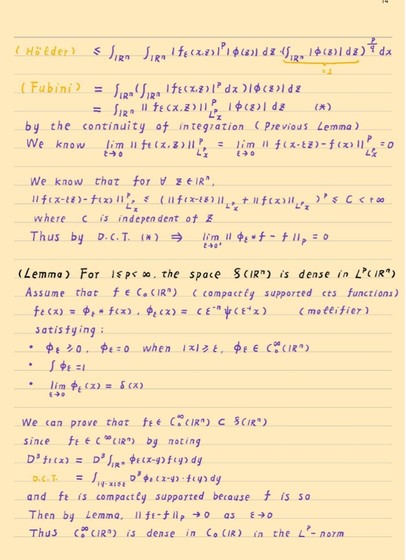 14
(Hölder) ≤ ∫_{ℝⁿ} ∫_{ℝⁿ} |f_ε(x,z)|^p |ϕ(z)| dz · (∫_{ℝⁿ} |ϕ(z)| dz)^{p/q} dx
=1
(Fubini) = ∫_{ℝⁿ} (∫_{ℝⁿ} |f_ε(x,z)|^p dx) |ϕ(z)| dz
= ∫_{ℝⁿ} ||f_ε(x,z)||^p_{L^p_x} |ϕ(z)| dz (*)
by the continuity of integration (Previous Lemma)
We know lim_{ε→0} ||f_ε(x,z)||^p_{L^p_x} = lim_{ε→0} ||f(x-εz)-f(x)||^p_{L^p_x} = 0
We know that for ∀ z∈ℝⁿ,
||f(x-εz)-f(x)||^p_{L^p_x} ≤ (||f(x-εz)||_{L^p_x} + ||f(x)||_{L^p_x})^p ≤ C < +∞
where C is independent of z
Thus by D.C.T. (*) ⇒ lim_{ε→0⁺} ||ϕ_ε * f - f||_p = 0
(Lemma) For 1≤p<∞, the space S(ℝⁿ) is dense in L^p(ℝⁿ)
Assume that f∈C₀(ℝⁿ) (compactly supported cts functions)
f_ε(x) = ϕ_ε * f(x), ϕ_ε(x) = cε⁻ⁿ ψ(ε⁻¹x) (mollifier)
satisfying:
• ϕ_ε ≥ 0, ϕ_ε = 0 when |x| ≥ ε, ϕ_ε ∈ C₀^∞(ℝⁿ)
• ∫ϕ_ε = 1
• lim_{ε→0} ϕ_ε(x) = δ(x)
We can prove that f_ε ∈ C₀^∞(ℝⁿ) ⊂ S(ℝⁿ)
since f_ε ∈ C^∞(ℝⁿ) by noting
D^β f_ε(x) = D^β ∫_{ℝⁿ} ϕ_ε(x-y) f(y) dy
D.C.T. = ∫_{|y-x|≤ε} D^β ϕ_ε(x-y) · f(y) dy
and f_ε is compactly supported because f is so
Then by Lemma, ||f_ε - f||_p → 0 as ε→0
Thus C₀^∞(ℝⁿ) is dense in C₀(ℝ) in the L^p-norm